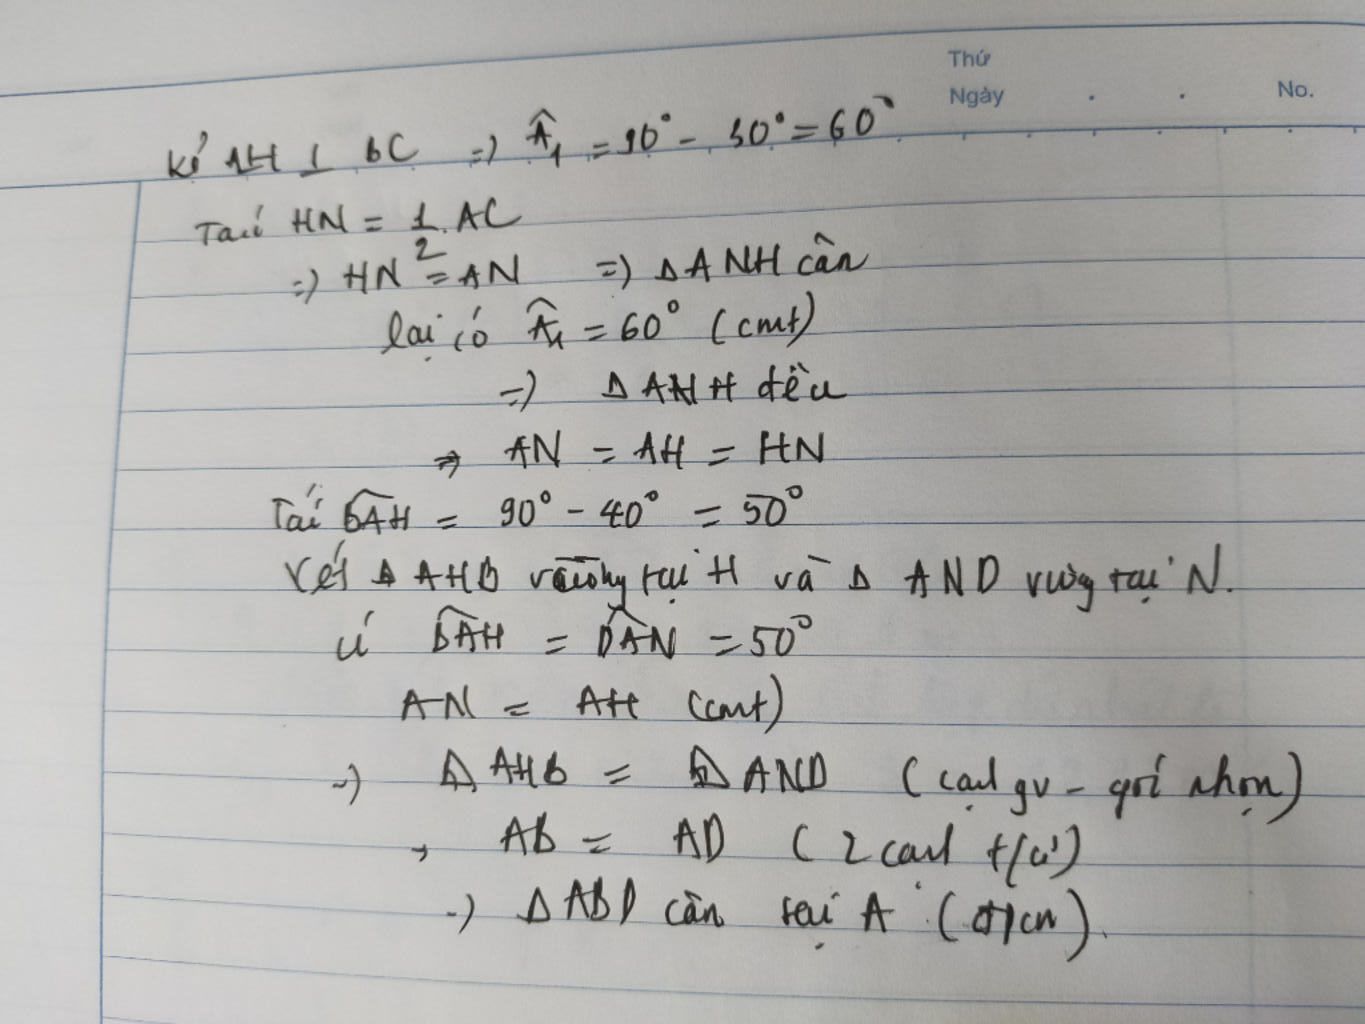 Thứ
Ngày . . No.
Kẻ AH ⊥ BC => Â₁ = 90° - 30° = 60°
Ta có HN = 1/2 . AC
=> HN = AN => Δ ANH cân
lại có Â₁ = 60° (cmt)
=> Δ ANH đều
=> AN = AH = HN
Ta có BAH = 90° - 40° = 50°
Xét Δ AHB vuông tại H và Δ AND vuông tại N.
có BAH = DAN = 50°
AN = AH (cmt)
=> Δ AHB = Δ AND (cạnh gv - góc nhọn)
AB = AD (2 cạnh t/ư)
=> Δ ABD cân tại A (đ/cm).